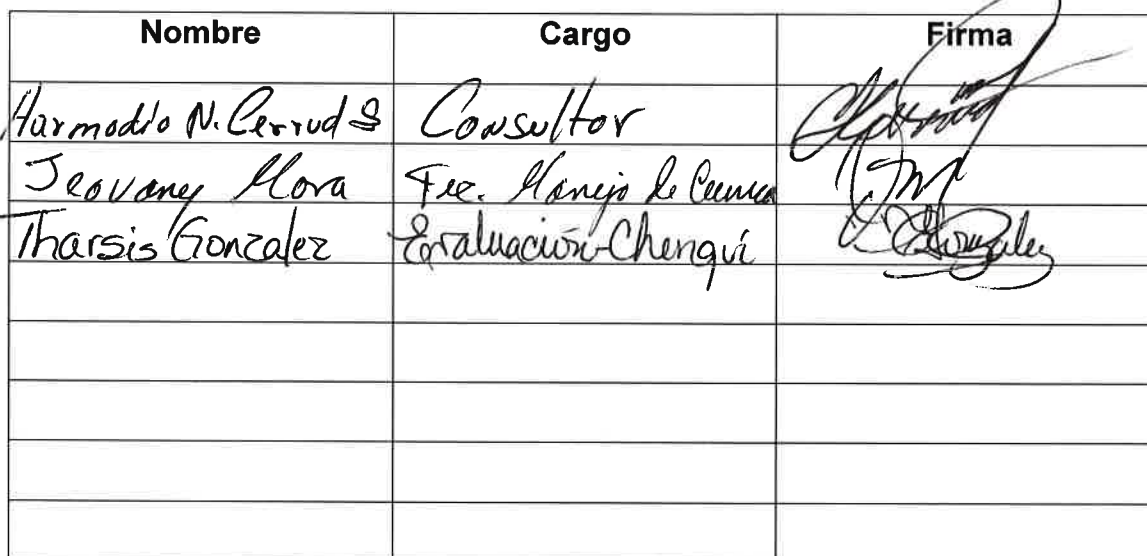 Nombre Cargo Firma
Harmodio N. Cerrud S Consultor
Jeovany Mora Tec. Manejo de Cuenca
Tharsis Gonzalez Evaluación-Chiriquí